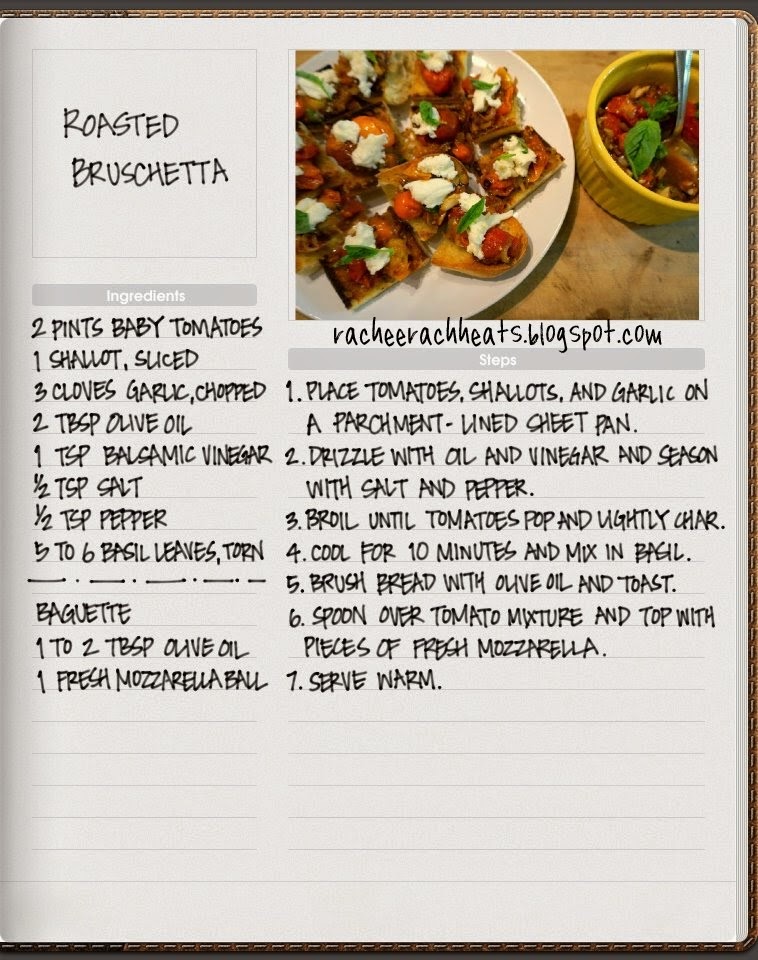 ROASTED
BRUSCHETTA
Ingredients
2 PINTS BABY TOMATOES
1 SHALLOT, SLICED
3 CLOVES GARLIC, CHOPPED
2 TBSP OLIVE OIL
1 TSP BALSAMIC VINEGAR
1/2 TSP SALT
1/2 TSP PEPPER
5 TO 6 BASIL LEAVES, TORN
BAGUETTE
1 TO 2 TBSP OLIVE OIL
1 FRESH MOZZARELLA BALL
racheerachheats.blogspot.com
Steps
1. PLACE TOMATOES, SHALLOTS, AND GARLIC ON
A PARCHMENT-LINED SHEET PAN.
2. DRIZZLE WITH OIL AND VINEGAR AND SEASON
WITH SALT AND PEPPER.
3. BROIL UNTIL TOMATOES POP AND LIGHTLY CHAR.
4. COOL FOR 10 MINUTES AND MIX IN BASIL.
5. BRUSH BREAD WITH OLIVE OIL AND TOAST.
6. SPOON OVER TOMATO MIXTURE AND TOP WITH
PIECES OF FRESH MOZZARELLA.
7. SERVE WARM.